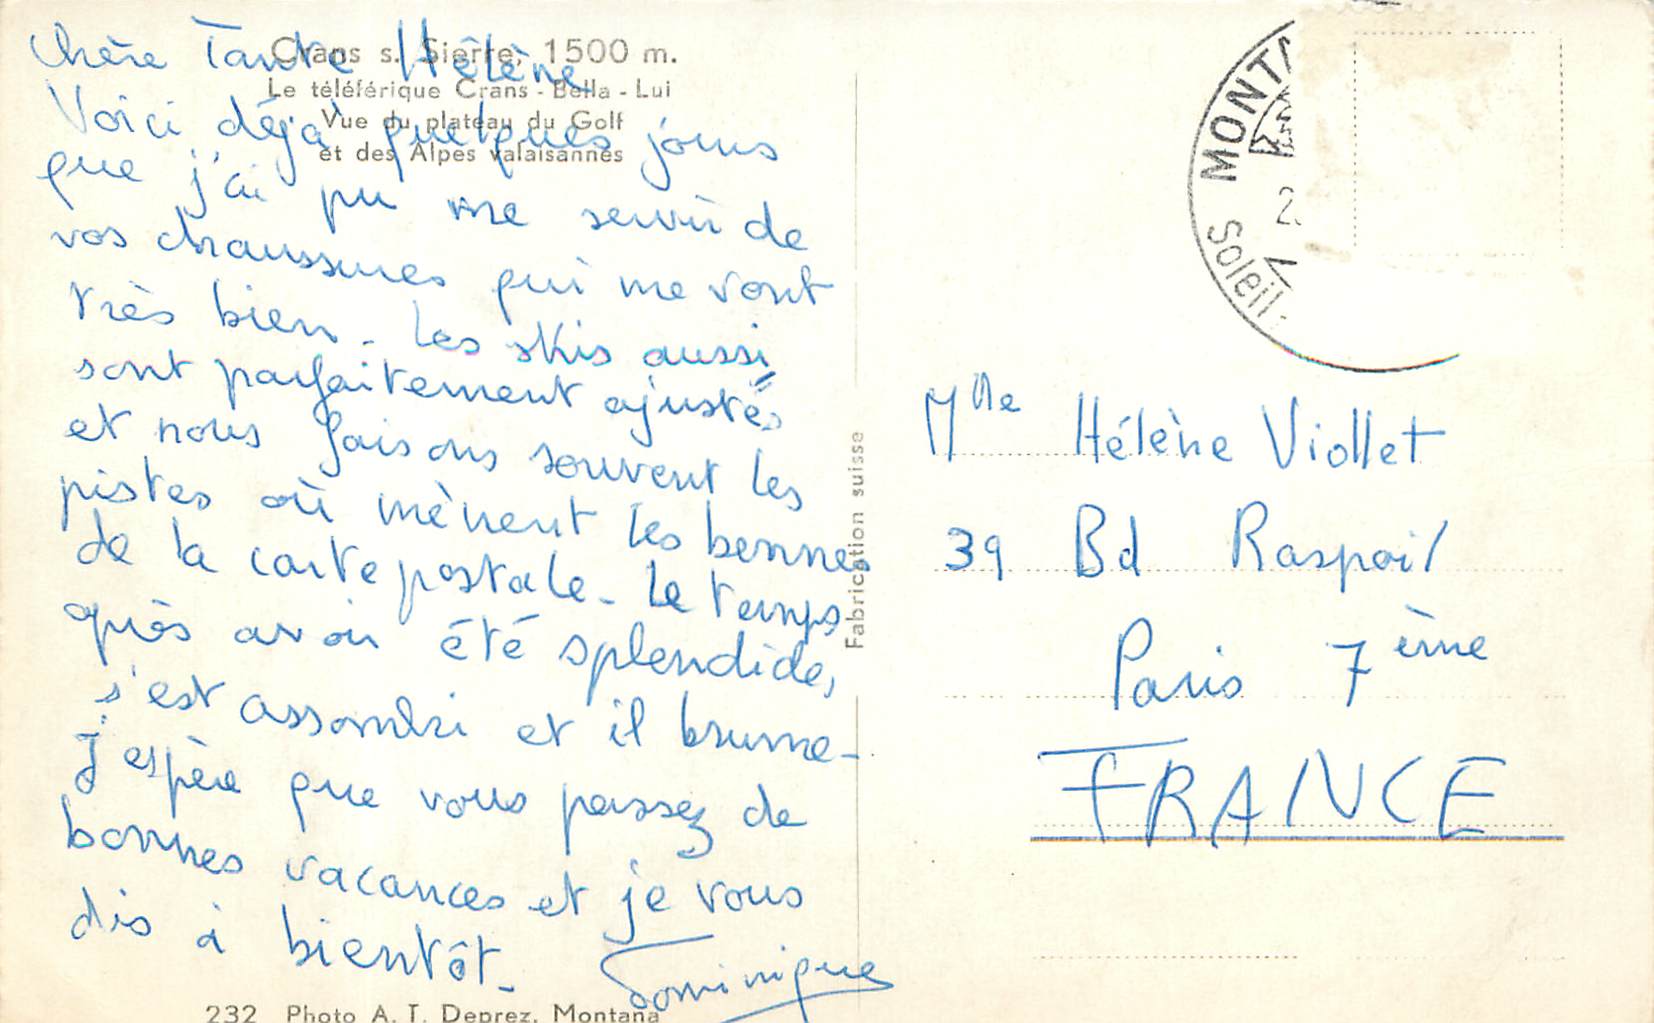 Crans s. Sierre, 1500 m.
Le téléférique Crans - Bella - Lui
Vue du plateau du Golf
et des Alpes valaisannes
Chère Tante Hélène
Voici déjà quelques jours
que j'ai pu me servir de
vos chaussures qui me vont
très bien. Les skis aussi,
sont parfaitement ajustés
et nous faisons souvent les
pistes où mènent les bennes
de la carte postale. Le temps
après avoir été splendide,
s'est assombri et il brume -
J'espère que vous passez de
bonnes vacances et je vous
dis à bientôt.
Dominique
232 Photo A. T. Deprez, Montana
Fabrication suisse
MONTA
2.
Soleil
Mlle Hélène Viollet
39 Bd Raspail
Paris 7ème
FRANCE